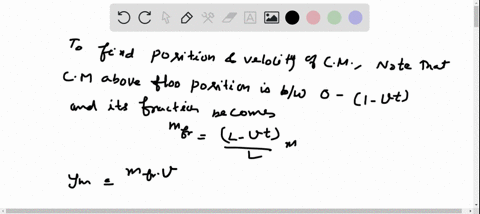 To find position & velocity of C.M., Note that
C.M above floo position is b/w 0 - (1 - vt)
and its fraction becomes
m_fr = (L - vt)/L m
y_m = m_fr . v